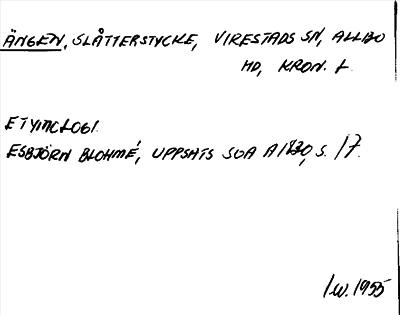 ÄNGEN, SLÅTTERSTYCKE, VIRESTADS SN, ALLBO
HD, KRON. L.
ETYMOLOGI.
ESBJÖRN BLOHMÉ, UPPSATS SOA A1830, S. 17.
I.W. 1955